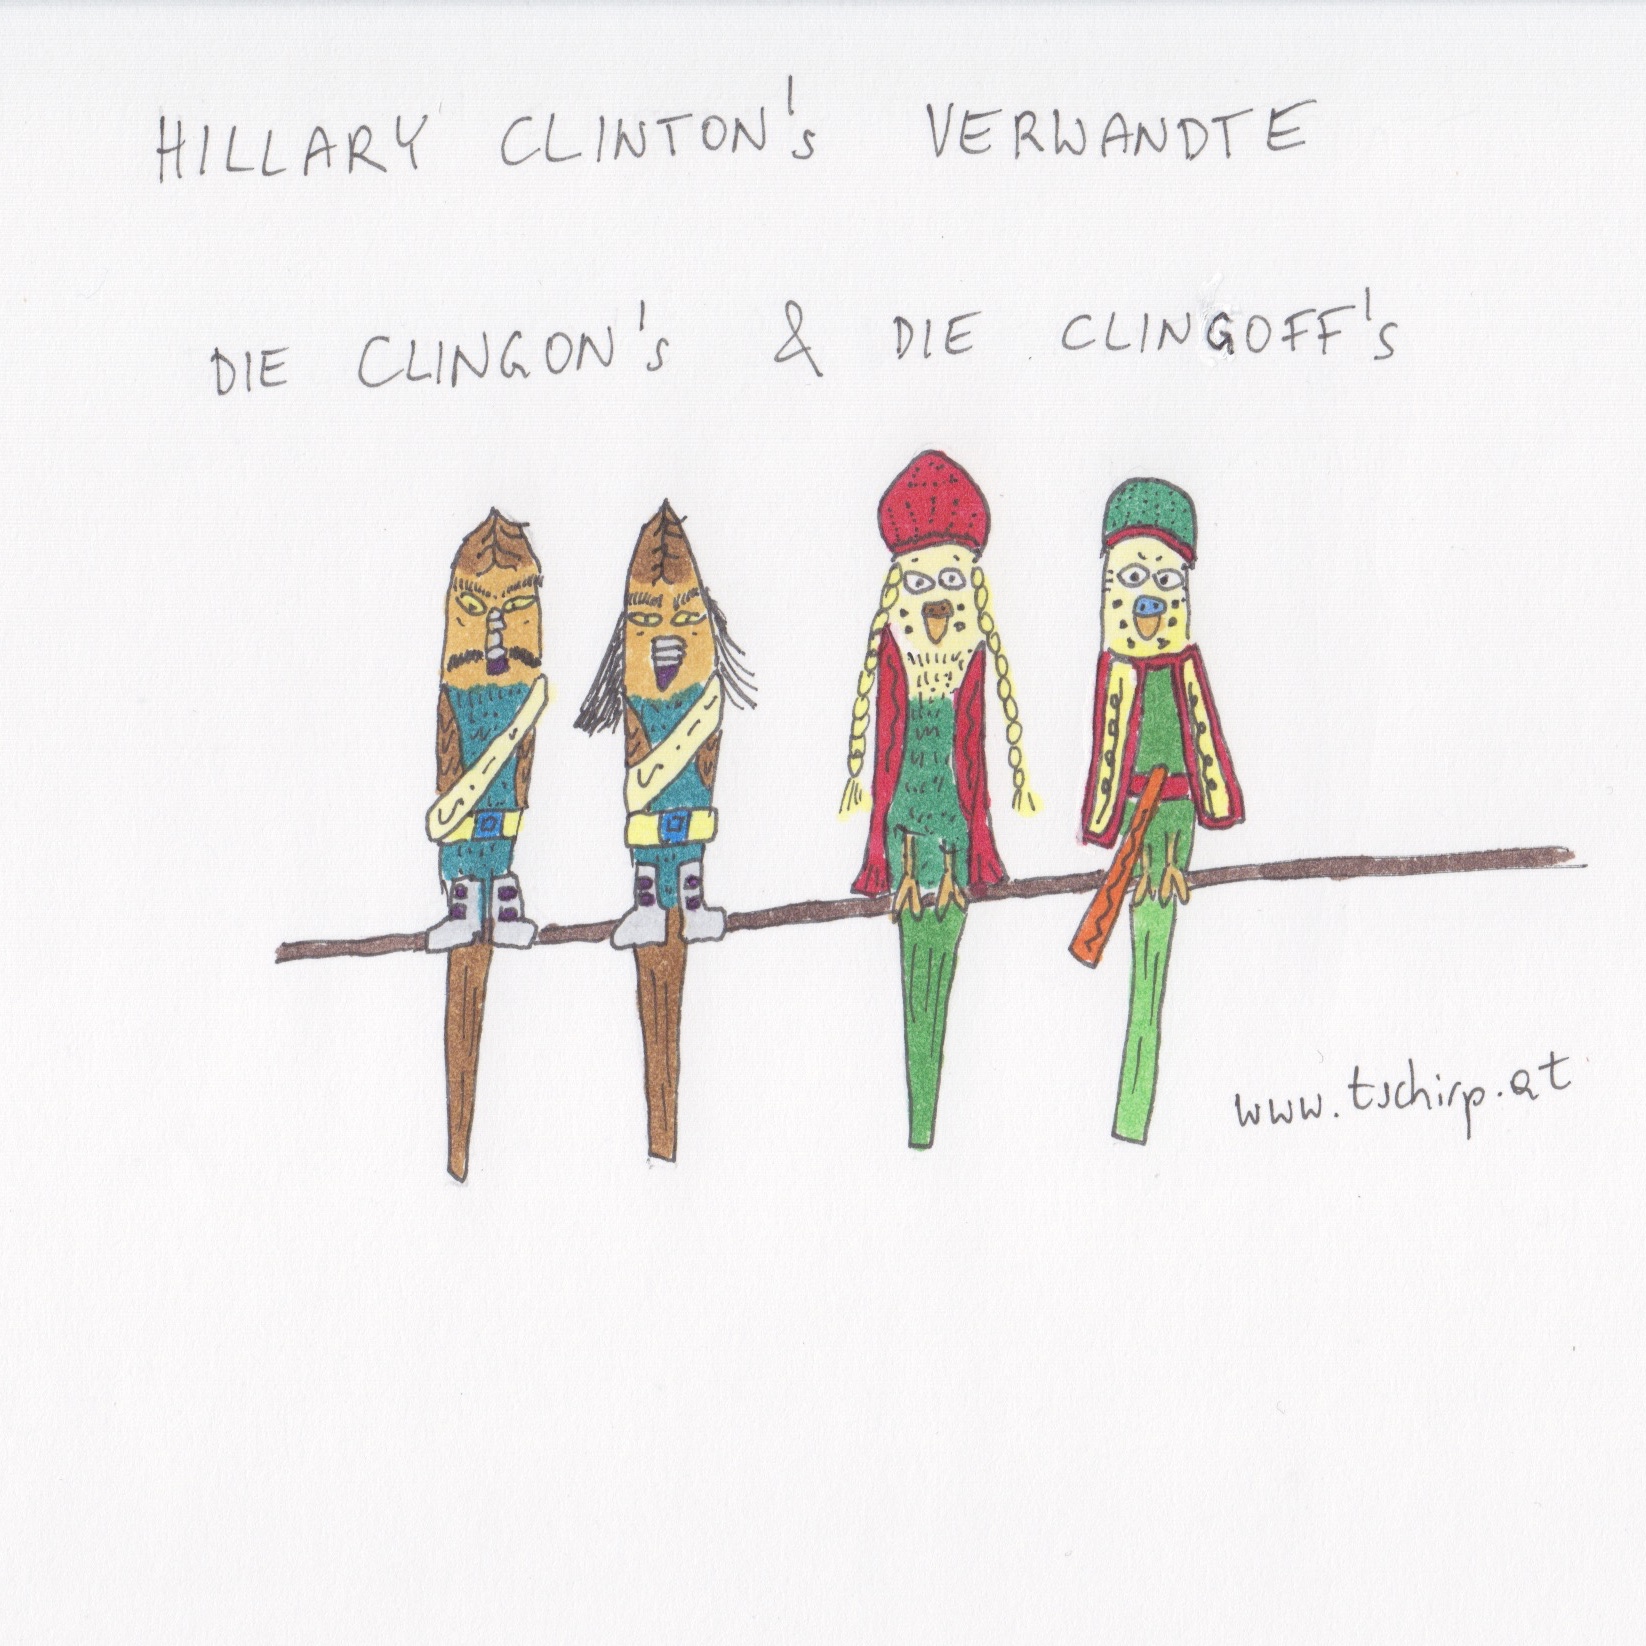 HILLARY CLINTON's VERWANDTE
DIE CLINGON's & DIE CLINGOFF's
www.tschirp.at